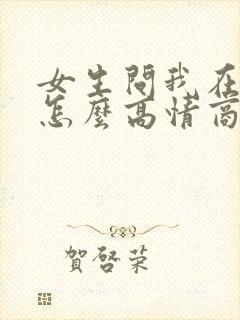 女生問我在
怎麼高情商
賀啓荣